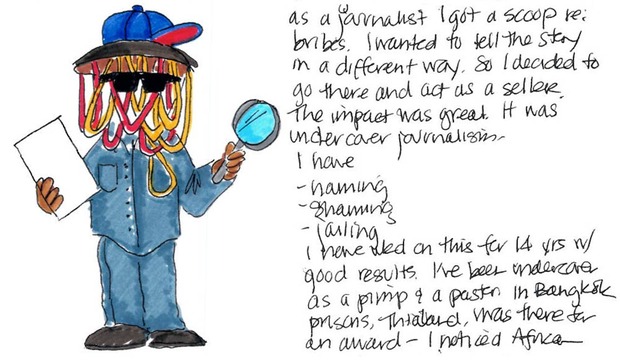 as a journalist I got a scoop re:
bribes. I wanted to tell the story
in a different way. So I decided to
go there and act as a seller.
The impact was great. It was
undercover journalism.
I have
- naming
- shaming
- jailing
I have on this for 14 yrs w/
good results. I've been undercover
as a pimp & a pastor in Bangkok
prisons, Thailand, was there for
an award - I noticed Africa